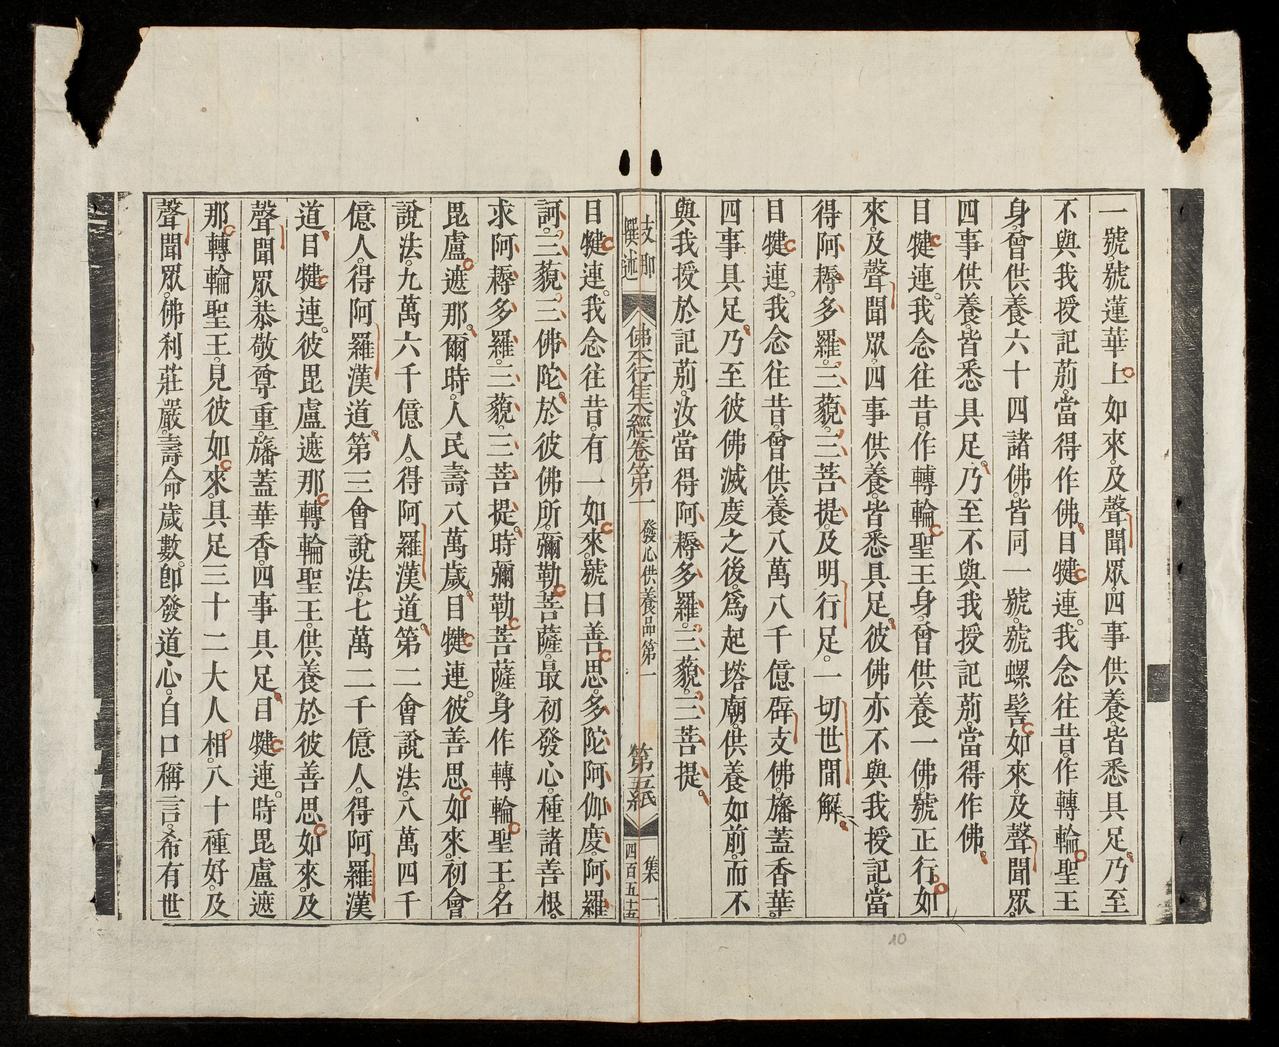 一號。號蓮華上如來。及聲聞眾。四事供養。皆悉具足。乃至
不與我授記莂。當得作佛。目犍連。我念往昔。作轉輪聖王
身。曾供養六十四諸佛。皆同一號。號螺髻如來。及聲聞眾。
四事供養。皆悉具足。乃至不與我授記莂。當得作佛。
目犍連。我念往昔。作轉輪聖王身。曾供養一佛。號正行如
來。及聲聞眾。四事供養。皆悉具足。彼佛亦不與我授記。當
得阿耨多羅。三藐。三菩提。及明行足。一切世間解。
目犍連。我念往昔。曾供養八萬八千億辟支佛。旛蓋香華。
四事具足。乃至彼佛滅度之後。為起塔廟。供養如前。而不
與我授於記莂。汝當得阿耨多羅。三藐。三菩提。
支那
撰述
佛本行集經卷第一
發心供養品第一
第五紙
集一
四百五十五
目犍連。我念往昔。有一如來。號曰善思。多陀阿伽度阿羅
訶。三藐。三佛陀。於彼佛所。彌勒菩薩。最初發心。種諸善根。
求阿耨多羅。三藐。三菩提。時彌勒菩薩。身作轉輪聖王。名
毘盧遮那。爾時。人民壽八萬歲。目犍連。彼善思如來。初會
說法。九萬六千億人。得阿羅漢道。第二會說法。八萬四千
億人。得阿羅漢道。第三會說法。七萬二千億人。得阿羅漢
道。目犍連。彼毘盧遮那。轉輪聖王。供養於彼善思如來。及
聲聞眾。恭敬尊重。旛蓋華香。四事具足。目犍連。時毘盧遮
那。轉輪聖王。見彼如來。具足三十二大人相。八十種好。及
聲聞眾。佛利莊嚴。壽命歲數。即發道心。自口稱言。希有世